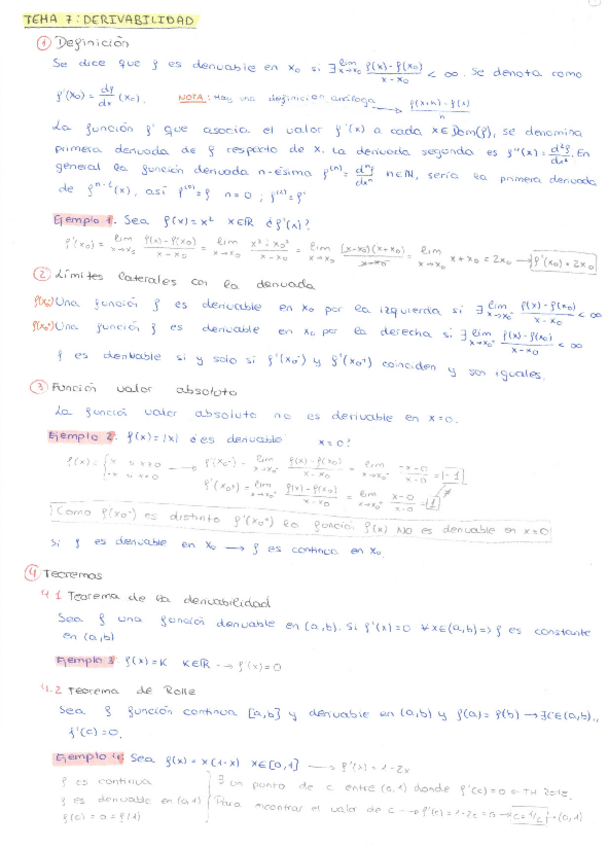 TEMA 7: DERIVABILIDAD
① Definición
Se dice que f es derivable en x₀ si ∃ lim x→x₀ (f(x) - f(x₀))/(x - x₀) < ∞. Se denota como
f'(x₀) = df/dx (x₀). NOTA: Hay una definición análoga → (f(x+h) - f(x))/h
La función f' que asocia el valor f'(x) a cada x ∈ Dom(f), se denomina
primera derivada de f respecto de x. La derivada segunda es f''(x) = d²f/dx². En
general la función derivada n-ésima f⁽ⁿ⁾ = dⁿf/dxⁿ n∈ℕ, sería la primera derivada
de fⁿ⁻¹(x), así f⁽⁰⁾ = f n=0 ; f⁽¹⁾ = f'
Ejemplo 1. Sea f(x) = x² x∈ℝ ¿f'(x)?
f'(x₀) = lim x→x₀ (f(x) - f(x₀))/(x - x₀) = lim x→x₀ (x² - x₀²)/(x - x₀) = lim x→x₀ (x-x₀)(x+x₀)/(x-x₀) = lim x→x₀ x + x₀ = 2x₀ → f'(x₀) = 2x₀
② Límites laterales con la derivada
f(x₀⁻) Una función f es derivable en x₀ por la izquierda si ∃ lim x→x₀⁻ (f(x) - f(x₀))/(x - x₀) < ∞
f(x₀⁺) Una función f es derivable en x₀ por la derecha si ∃ lim x→x₀⁺ (f(x) - f(x₀))/(x - x₀) < ∞
f es derivable si y solo si f'(x₀⁻) y f'(x₀⁺) coinciden y son iguales.
③ Función valor absoluto
La función valor absoluto no es derivable en x=0.
Ejemplo 2. f(x) = |x| ¿es derivable x=0?
f(x) = { x si x≥0 → f'(x₀⁻) = lim x→x₀⁻ (f(x) - f(x₀))/(x - x₀) = lim x→x₀⁻ (-x-0)/(x-0) = -1
-x si x<0 f'(x₀⁺) = lim x→x₀⁺ (f(x) - f(x₀))/(x - x₀) = lim x→x₀⁺ (x-0)/(x-0) = 1 ≠
Como f(x₀⁻) es distinto f'(x₀⁺) la función f(x) NO es derivable en x=0
Si f es derivable en x₀ → f es continua en x₀.
④ Teoremas
4.1 Teorema de la derivabilidad
Sea f una función derivable en (a,b). Si f'(x)=0 ∀x∈(a,b) => f es constante
en (a,b)
Ejemplo 3 f(x)=K K∈ℝ → f'(x)=0
4.2 Teorema de Rolle
Sea f función continua [a,b] y derivable en (a,b) y f(a) = f(b) → ∃c∈(a,b).,
f'(c) = 0.
Ejemplo 4. Sea f(x) = x(1-x) x∈[0,1] → f'(x) = 1-2x
f es continua } ∃ un punto de c entre (0,1) donde f'(c)=0
f es derivable en (0,1) } Para encontrar el valor de c → f'(c) = 1-2c = 0 → c=1/2 ∈ (0,1)
f(0) = 0 = f(1)